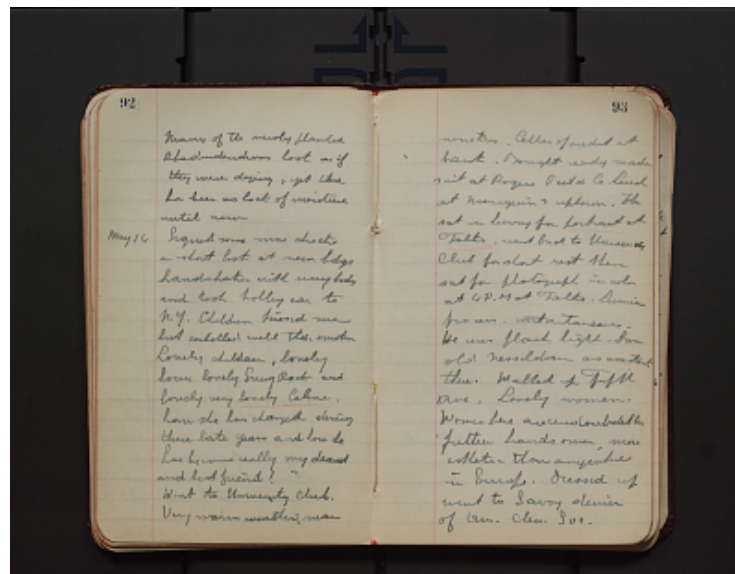 92
Many of the newly planted
Rhododendrons look as if
they were dying, yet there
has been no lack of moisture
until now
May 16
Signed some more checks
a short look at new bldgs
handshakes with everybody
and took trolley car to
N.Y. Children kissed me
but enthralled with their
Lovely children, lovely
home lovely Snug Rock and
lovely very lovely Celine.
how she has changed during
these late years and how she
has become really my dearest
and best friend!
Went to University Club.
Very warm weather, near
93
Letter of credit at
bank. Bought ready made
suit at Rogers Peet & Co. Lunch
at uptown. Then
sat for portrait at
Falks, went back to University
Club for short rest then
sat for photograph in color
at 4 P.M at Falks. Lumiere
process. instantaneous.
He uses flash light.
old Nesseldorn as assistant
there. Walked up Fifth
Ave. Lovely women.
Women here are
prettier handsomer, more
than anywhere
in Europe. Dressed up
went to Savoy dinner
of Am. Chem. Soc.